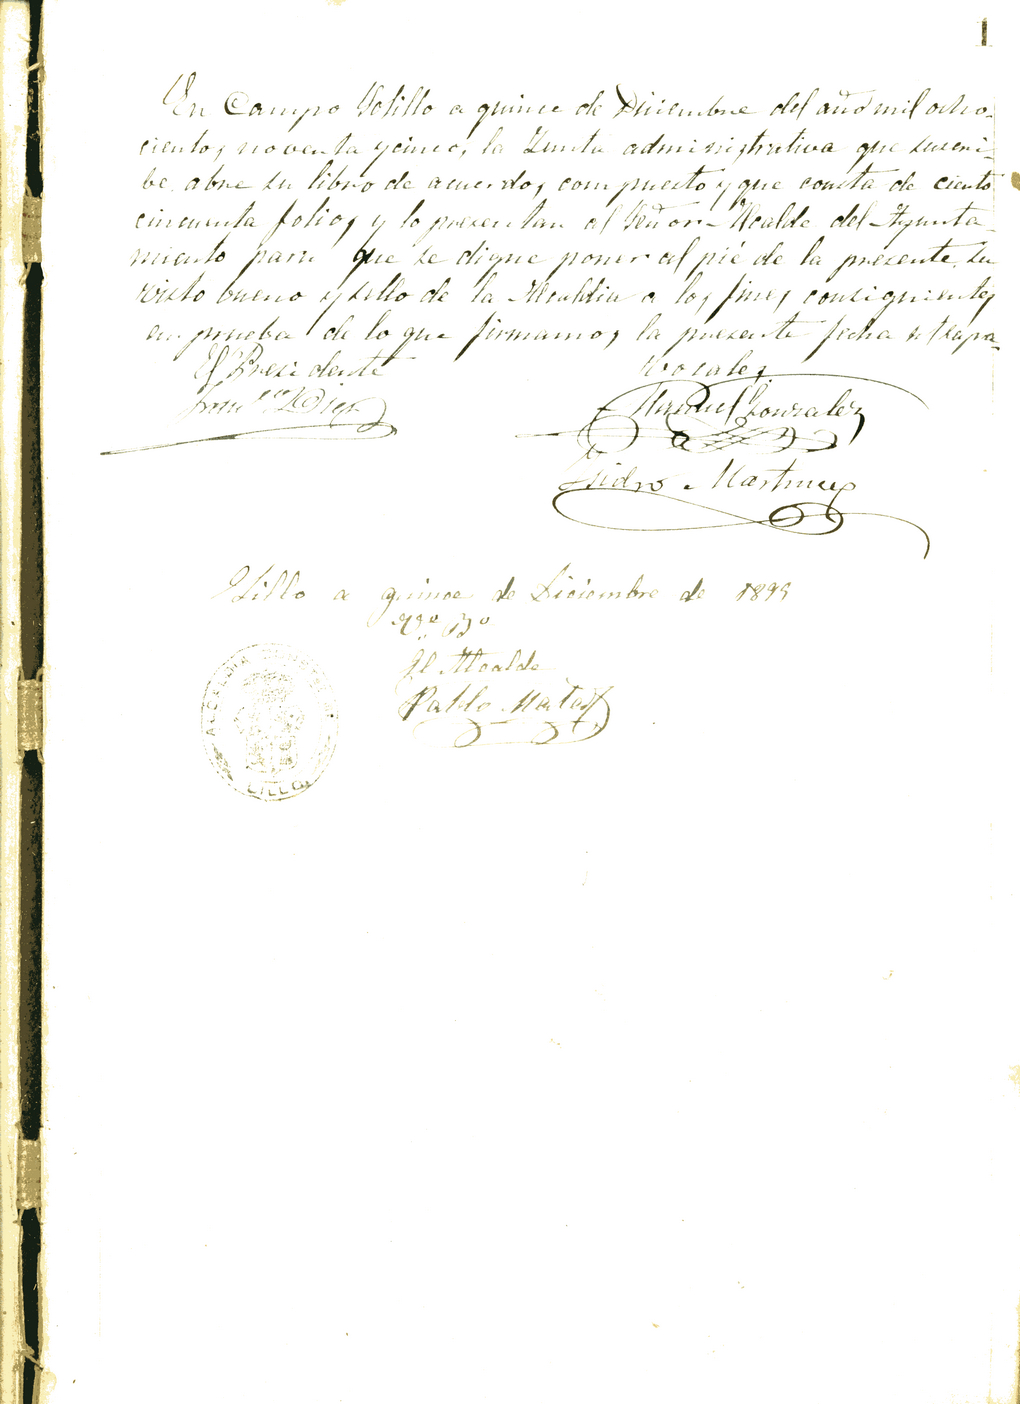 1
En Campo Solillo a quince de Diciembre del año mil ocho-
cientos noventa y cinco, la Junta administrativa que suscri-
be, abre su libro de acuerdos compuesto y que consta de ciento
cincuenta folios y lo presentan al Señor Alcalde del Ayunta-
miento para que se digne poner al pié de la presente su
visto bueno y sello de la Alcaldia a los fines consiguientes
en prueba de lo que firmamos la presente fecha
El Presidente
Vocales
Franco Diez
Manuel Gonzalez
Isidro Martinez
Lillo a quince de Diciembre de 1895
Vº Bº
El Alcalde
Pablo Mata
ALCALDIA
LILLO